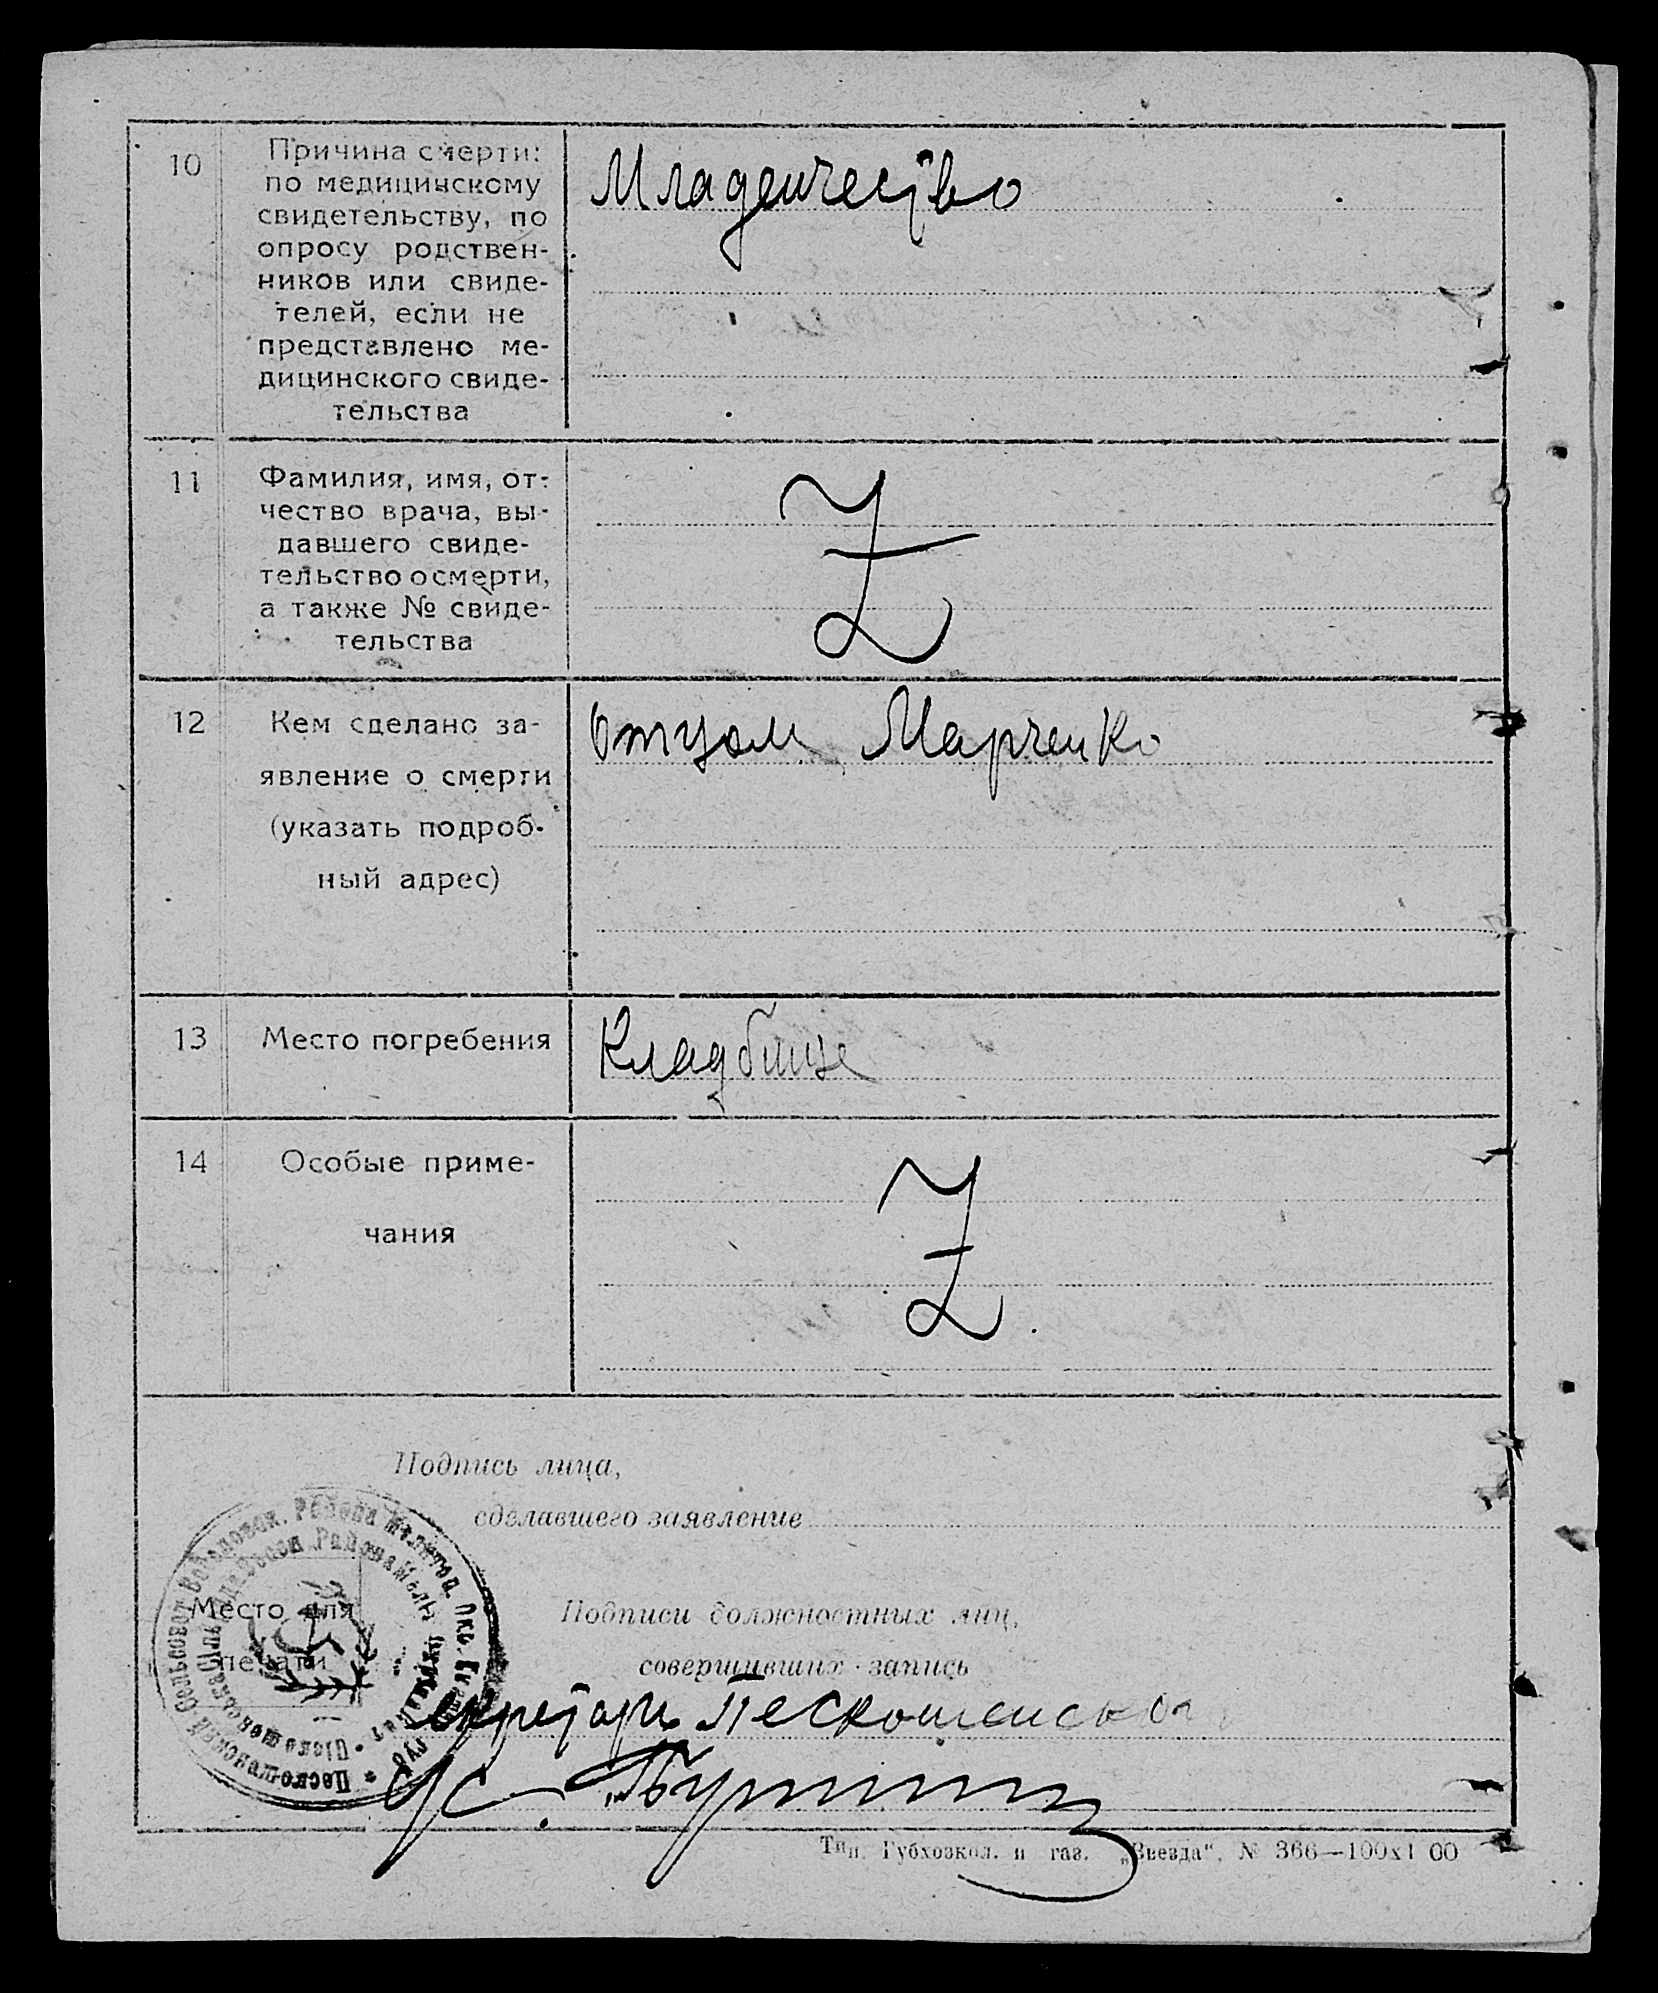 10
Причина смерти:
по медицинскому
свидетельству, по
опросу родствен-
ников или свиде-
телей, если не
представлено ме-
дицинского свиде-
тельства
Младенчество
11
Фамилия, имя, от-
чество врача, вы-
давшего свиде-
тельство о смерти,
а также № свиде-
тельства
Z
12
Кем сделано за-
явление о смерти
(указать подроб-
ный адрес)
Отцом Марченко
13
Место погребения
Кладбище
14
Особые приме-
чания
Z
Подпись лица,
сделавшего заявление
Место для
печати
Подписи должностных лиц,
совершивших запись
секретарь Пескошенской
Тип. Губхозкол. и газ. „Звезда“. № 366—100х1 00